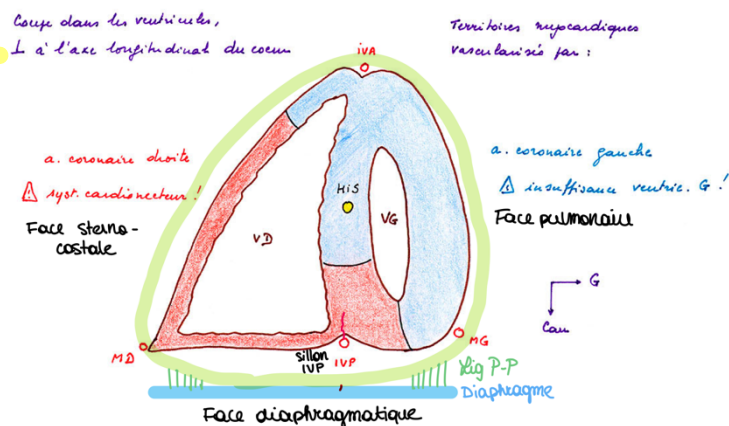 Coupe dans les ventricules,
⊥ à l'axe longitudinal du coeur
Territoires myocardiques
vascularisés par :
iVA
a. coronaire droite
⚠ syst. cardionecteur !
a. coronaire gauche
⚠ insuffisance ventric. G !
Face sterno-
costale
Face pulmonaire
HiS
VD
VG
G
Cau
MD
sillon
IVP
IVP
MG
Lig P-P
Diaphragme
Face diaphragmatique